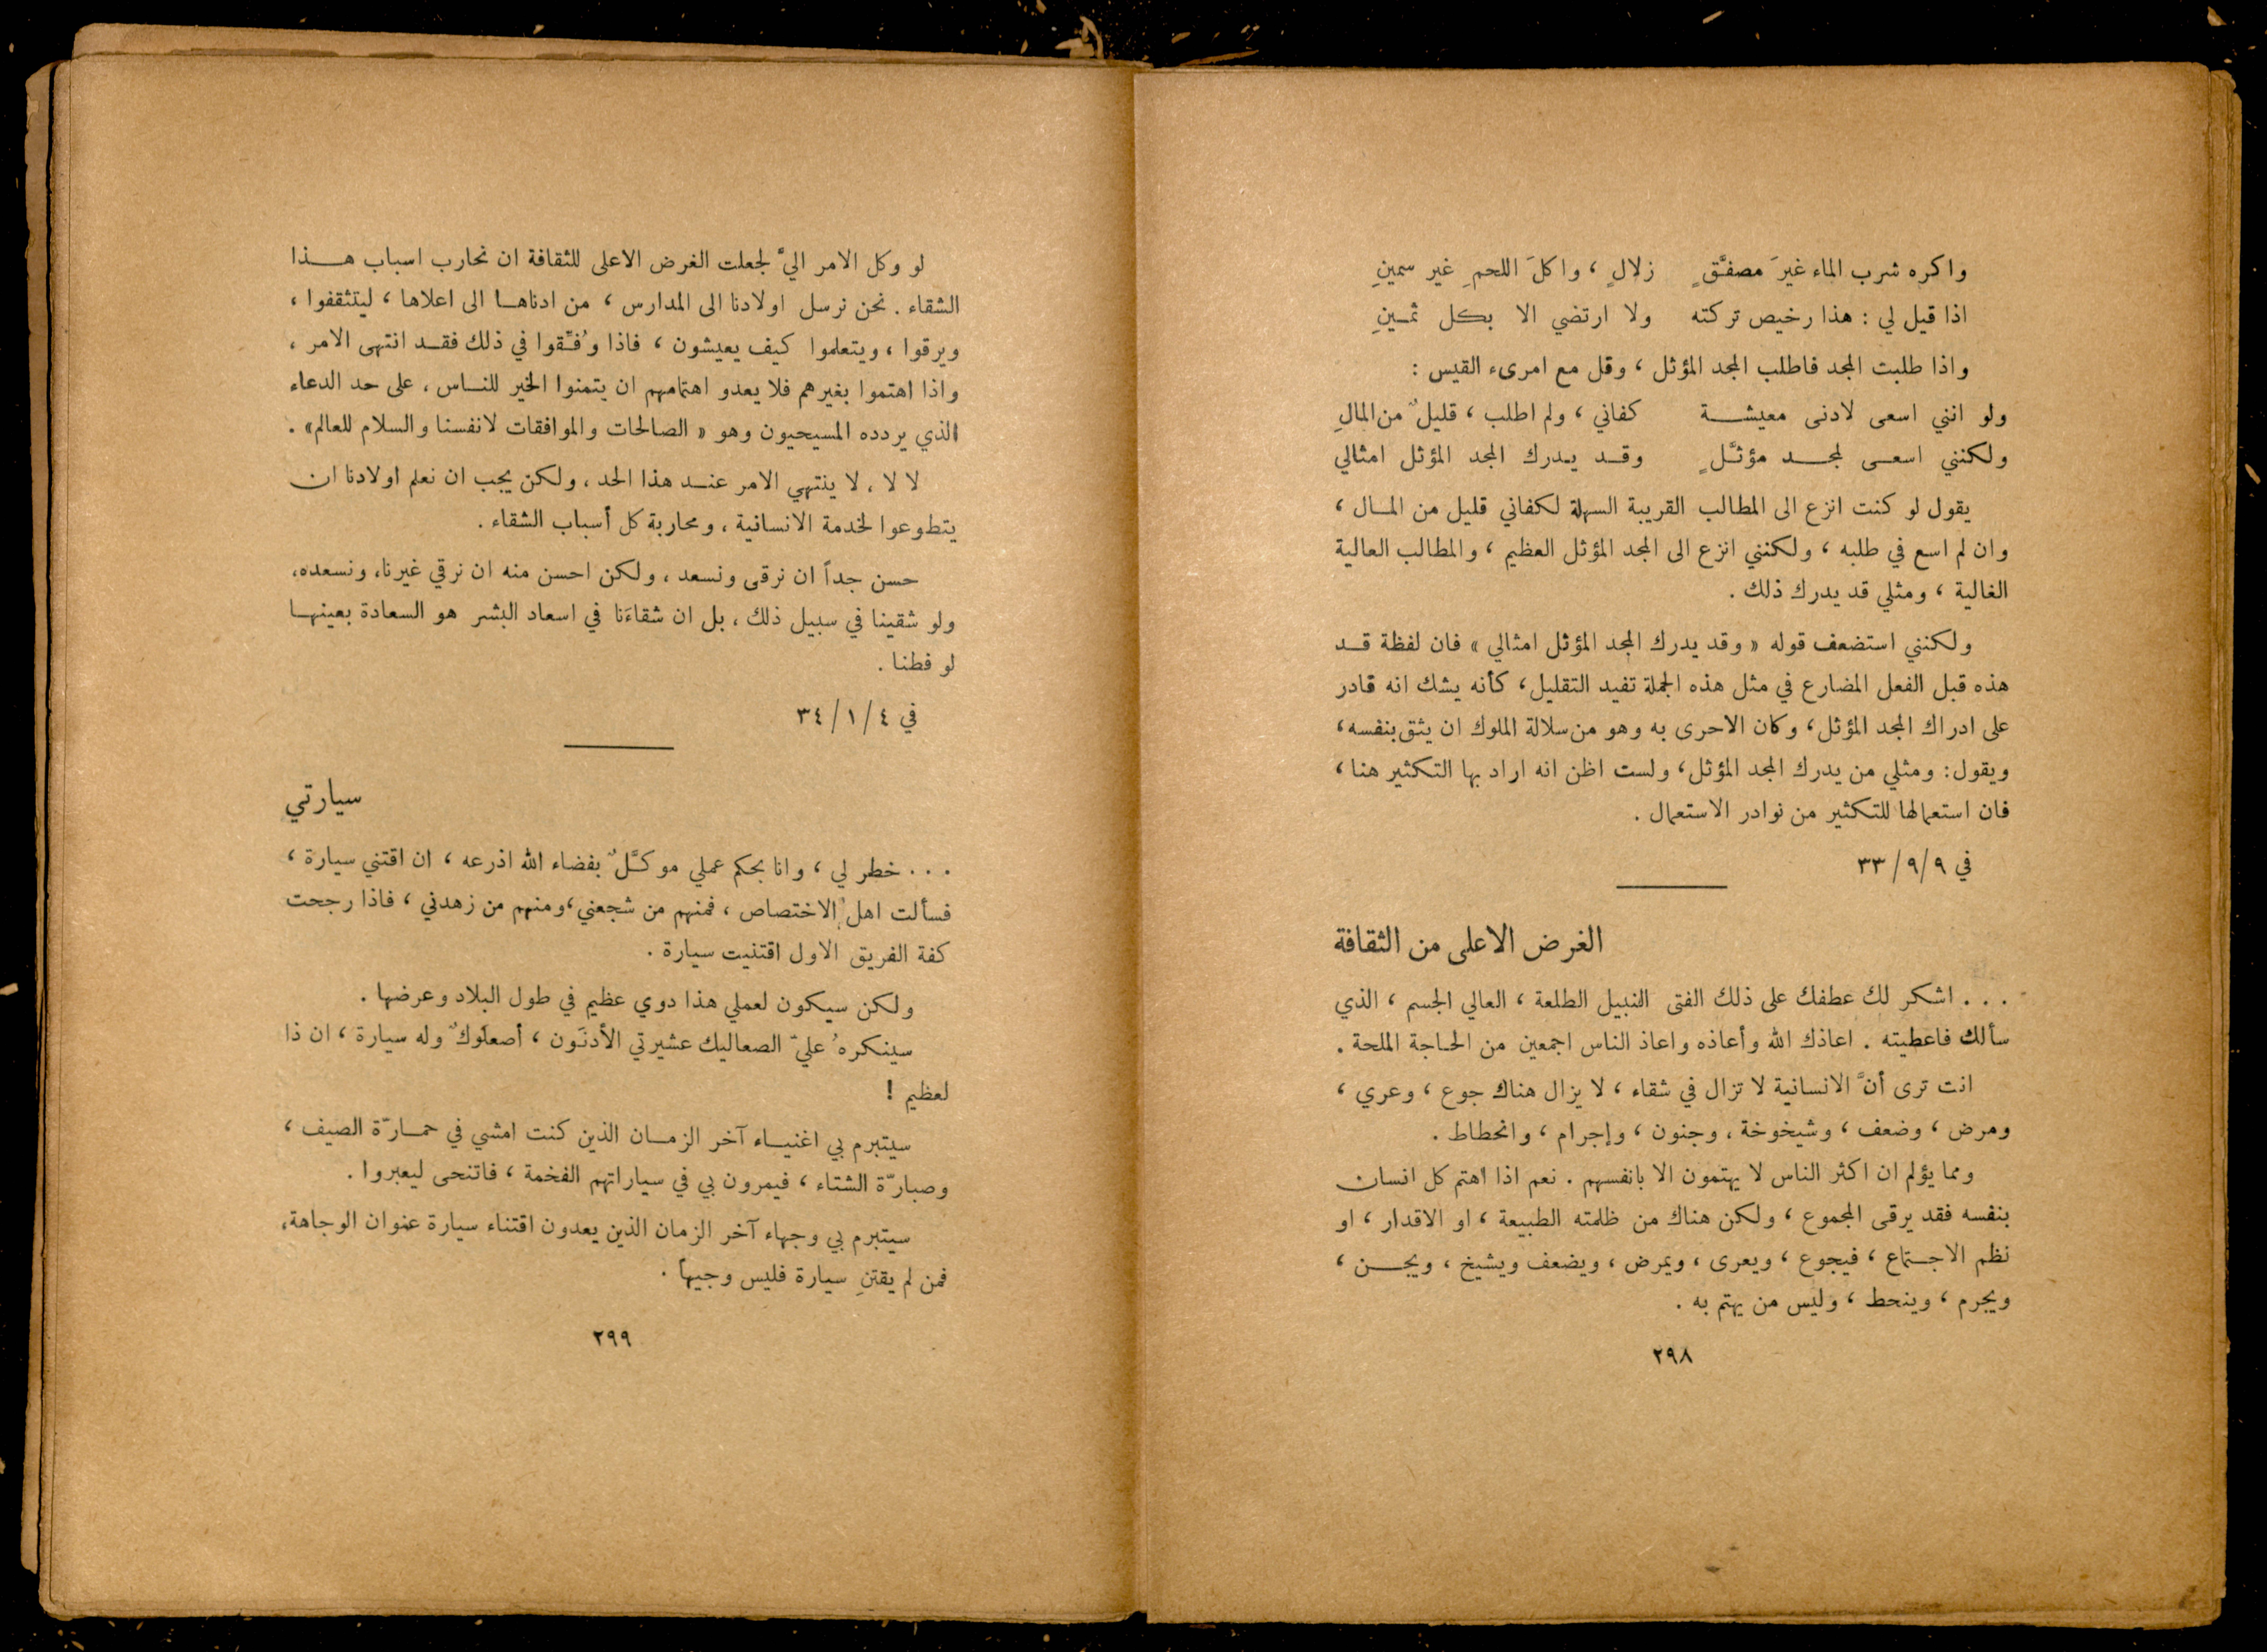 واكره شرب الماء غيرَ مصفَّقٍ زلالٍ ، واكلَ اللحمِ غير سمينِ
اذا قيل لي : هذا رخيص تركته ولا ارتضي الا بكل ثمينِ
واذا طلبت المجد فاطلب المجد المؤثل ، وقل مع امرىء القيس :
ولو انني اسعى لادنى معيشة كفاني ، ولم اطلب ، قليلٌ من المالِ
ولكنني اسعى لمجد مؤثَّلٍ وقد يدرك المجد المؤثل امثالي
يقول لو كنت انزع الى المطالب القريبة السهلة لكفاني قليل من المال ،
وان لم اسع في طلبه ، ولكنني انزع الى المجد المؤثل العظيم ، والمطالب العالية
الغالية ، ومثلي قد يدرك ذلك .
ولكنني استضعف قوله « وقد يدرك المجد المؤثل امثالي » فان لفظة قد
هذه قبل الفعل المضارع في مثل هذه الجملة تفيد التقليل، كأنه يشك انه قادر
على ادراك المجد المؤثل، وكان الاحرى به وهو من سلالة الملوك ان يثق بنفسه،
ويقول: ومثلي من يدرك المجد المؤثل، ولست اظن انه اراد بها التكثير هنا ،
فان استعمالها للتكثير من نوادر الاستعمال .
في ٩/٩/ ٣٣
الغرض الاعلى من الثقافة
. . . اشكر لك عطفك على ذلك الفتى النبيل الطلعة ، العالي الجسم ، الذي
سألك فاعطيته . اعاذك الله وأعاذه واعاذ الناس اجمعين من الحاجة الملحة .
انت ترى أنَّ الانسانية لا تزال في شقاء ، لا يزال هناك جوع ، وعري ،
ومرض ، وضعف ، وشيخوخة ، وجنون ، وإجرام ، وانحطاط .
ومما يؤلم ان اكثر الناس لا يهتمون الا بانفسهم . نعم اذا اهتم كل انسان
بنفسه فقد يرقى المجموع ، ولكن هناك من ظلمته الطبيعة ، او الاقدار ، او
نظم الاجتماع ، فيجوع ، ويعرى ، ويمرض ، ويضعف ويشيخ ، ويجن ،
ويجرم ، وينحط ، وليس من يهتم به .
٢٩٨
لو وكل الامر اليَّ لجعلت الغرض الاعلى للثقافة ان نحارب اسباب هذا
الشقاء . نحن نرسل اولادنا الى المدارس ، من ادناها الى اعلاها ، ليتثقفوا ،
ويرقوا ، ويتعلموا كيف يعيشون ، فاذا وُفـِّقوا في ذلك فقد انتهى الامر ،
واذا اهتموا بغيرهم فلا يعدو اهتمامهم ان يتمنوا الخير للناس ، على حد الدعاء
الذي يردده المسيحيون وهو « الصالحات والموافقات لانفسنا والسلام للعالم» .
لا لا ، لا ينتهي الامر عند هذا الحد ، ولكن يجب ان نعلم اولادنا ان
يتطوعوا لخدمة الانسانية ، ومحاربة كل أسباب الشقاء .
حسن جداً ان نرقى ونسعد ، ولكن احسن منه ان نرقي غيرنا، ونسعده،
ولو شقينا في سبيل ذلك ، بل ان شقاءَنا في اسعاد البشر هو السعادة بعينها
لو فطنا .
في ٤ /١ /٣٤
سيارتي
. . . خطر لي ، وانا بحكم عملي موكَّلٌ بفضاء الله اذرعه ، ان اقتني سيارة ،
فسألت اهل الاختصاص ، فمنهم من شجعني ،ومنهم من زهدني ، فاذا رجحت
كفة الفريق الاول اقتنيت سيارة .
ولكن سيكون لعملي هذا دوي عظيم في طول البلاد وعرضها .
سينكرهُ عليّ الصعاليك عشيرتي الأدنَون ، أصعلوكٌ وله سيارة ، ان ذا
لعظيم !
سيتبرم بي اغنياء آخر الزمان الذين كنت امشي في حمارّة الصيف ،
وصبارّة الشتاء ، فيمرون بي في سياراتهم الفخمة ، فاتنحى ليعبروا .
سيتبرم بي وجهاء آخر الزمان الذين يعدون اقتناء سيارة عنوان الوجاهة،
فمن لم يقتنِ سيارة فليس وجيهاً .
٢٩٩